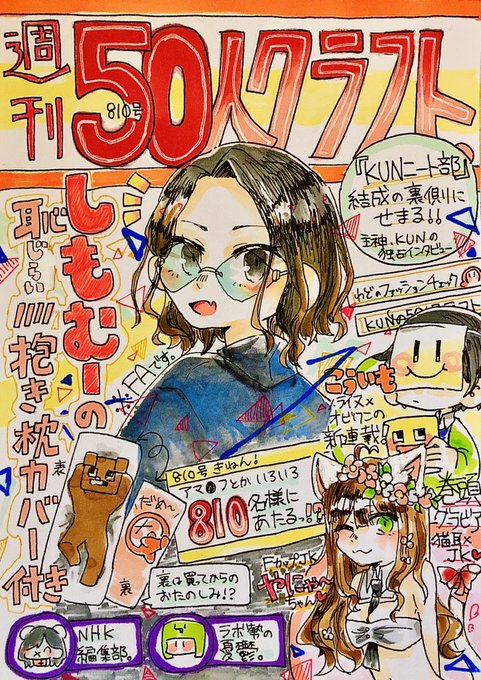 週刊
50人クラフト
810号
『KUNニート部』
結成の裏側に
せまる!!
主神、KUNの
独占インタビュー
わどのファッションチェック
KUNの50人クラフト
しもむーの
恥じらい抱き枕カバー付き
FAです。
こういも
ライヌ×
オビワニの
新連載!
810号 きねん!
アマ●フとかいろいろ
810名様に
あたるっ!?
巻頭
グラビア
猫耳×
JK♥
FカップJK
やにゃや〜
ちゃん♥
裏
だめ♡
裏
裏は買ってからの
おたのしみ!?
NHK
編集部。
ラボ勢の
憂鬱。